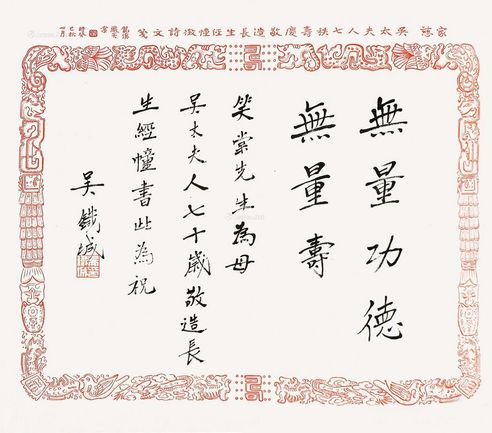 家慈吳太夫人七秩壽慶敬造長生經幢徵詩文箋
無量功德
無量壽
笑棠先生為母
吳太夫人七十歲敬造長
生經幢書此為祝
吳鐵城